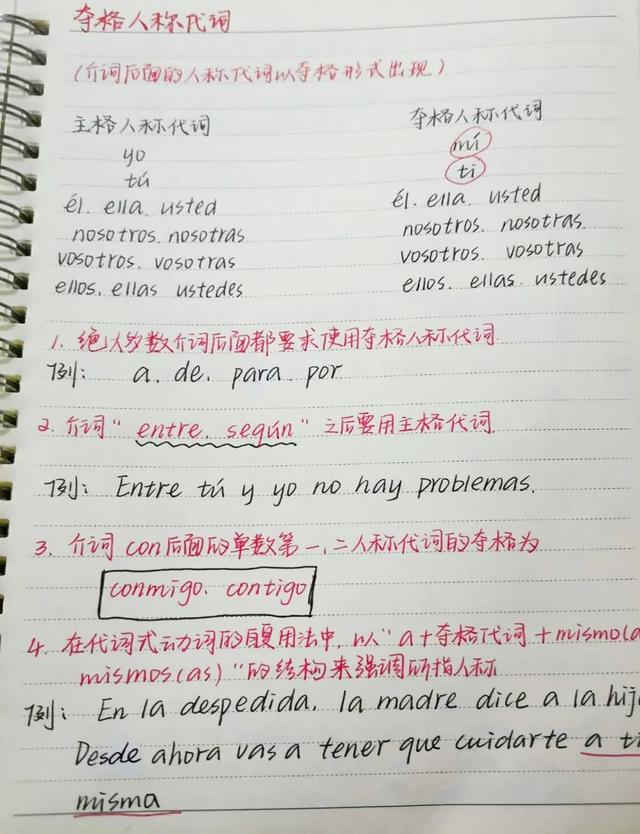 夺格人称代词
(介词后面的人称代词以夺格形式出现)
主格人称代词 夺格人称代词
yo mí
tú ti
él. ella. usted él. ella. usted
nosotros. nosotras nosotros. nosotras
vosotros. vosotras vosotros. vosotras
ellos. ellas ustedes ellos. ellas. ustedes
1. 绝大多数介词后面都要求使用夺格人称代词
例: a. de. para. por
2. 介词“entre. según”之后要用主格代词.
例: Entre tú y yo no hay problemas.
3. 介词 con后面的单数第一.二人称代词的夺格为
conmigo. contigo
4. 在代词式动词的自复用法中, 以“a+夺格代词+mismo(a
mismos(as)”的结构来强调所指人称
例: En la despedida, la madre dice a la hij
Desde ahora vas a tener que cuidarte a ti
misma